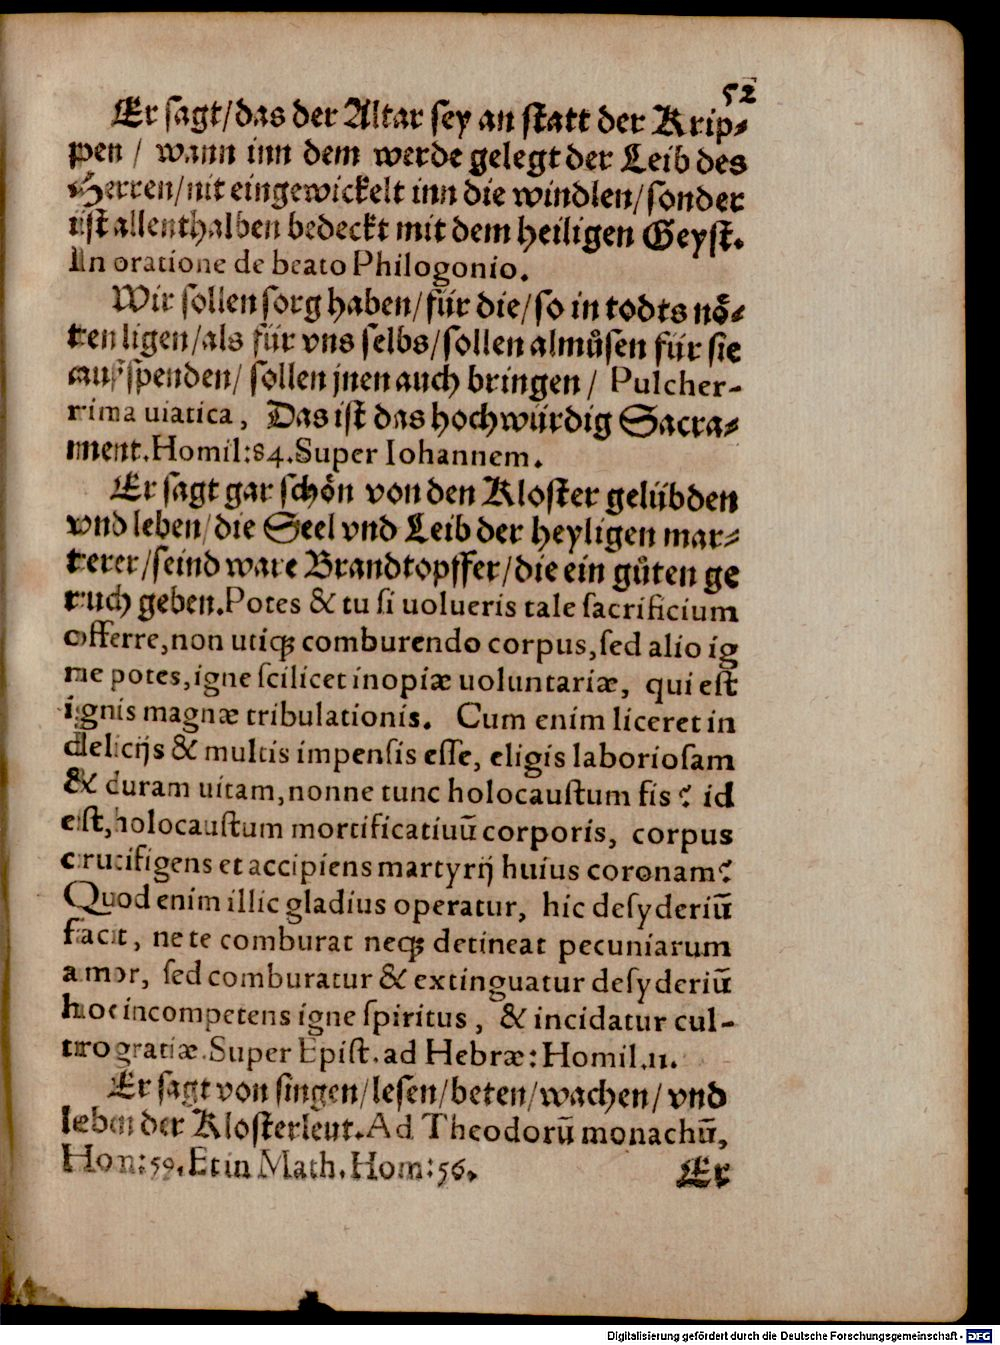 52
Er sagt/das der Altar sey an statt der Krip⸗
pen / wann inn dem werde gelegt der Leib des
Herren/nit eingewickelt inn die windlen/sonder
ist allenthalben bedeckt mit dem heiligen Geyst.
In oratione de beato Philogonio.
Wir sollen sorg haben/für die/so in todts noͤ⸗
ten ligen/als für vns selbs/sollen almuͦsen für sie
außspenden/ sollen jnen auch bringen / Pulcher-
rima uiatica, Das ist das hochwürdig Sacra⸗
ment. Homil:84. Super Iohannem.
Er sagt gar schoͤn von den Kloster gelübden
vnd leben/die Seel vnd Leib der heyligen mar⸗
terer/seind ware Brandtopffer/die ein guͦten ge
ruch geben. Potes & tu si uolueris tale sacrificium
offerre, non utiqꝫ comburendo corpus, sed alio ig
ne potes, igne scilicet inopiæ uoluntariæ, qui est
ignis magnæ tribulationis. Cum enim liceret in
delicijs & multis impensis esse, eligis laboriosam
& duram uitam, nonne tunc holocaustum fis? id
est, holocaustum mortificatiuū corporis, corpus
crucifigens et accipiens martyrij huius coronam?
Quod enim illic gladius operatur, hic desyderiū
facit, ne te comburat neqꝫ detineat pecuniarum
amor, sed comburatur & extinguatur desyderiū
hoc incompetens igne spiritus, & incidatur cul-
tro gratiæ. Super Epist. ad Hebræ: Homil. 11.
Er sagt von singen/lesen/beten/wachen/ vnd
leben der Klosterleut. Ad Theodorū monachū,
Hom: 59. Et in Math. Hom: 56.
Er
Digitalisierung gefördert durch die Deutsche Forschungsgemeinschaft - DFG